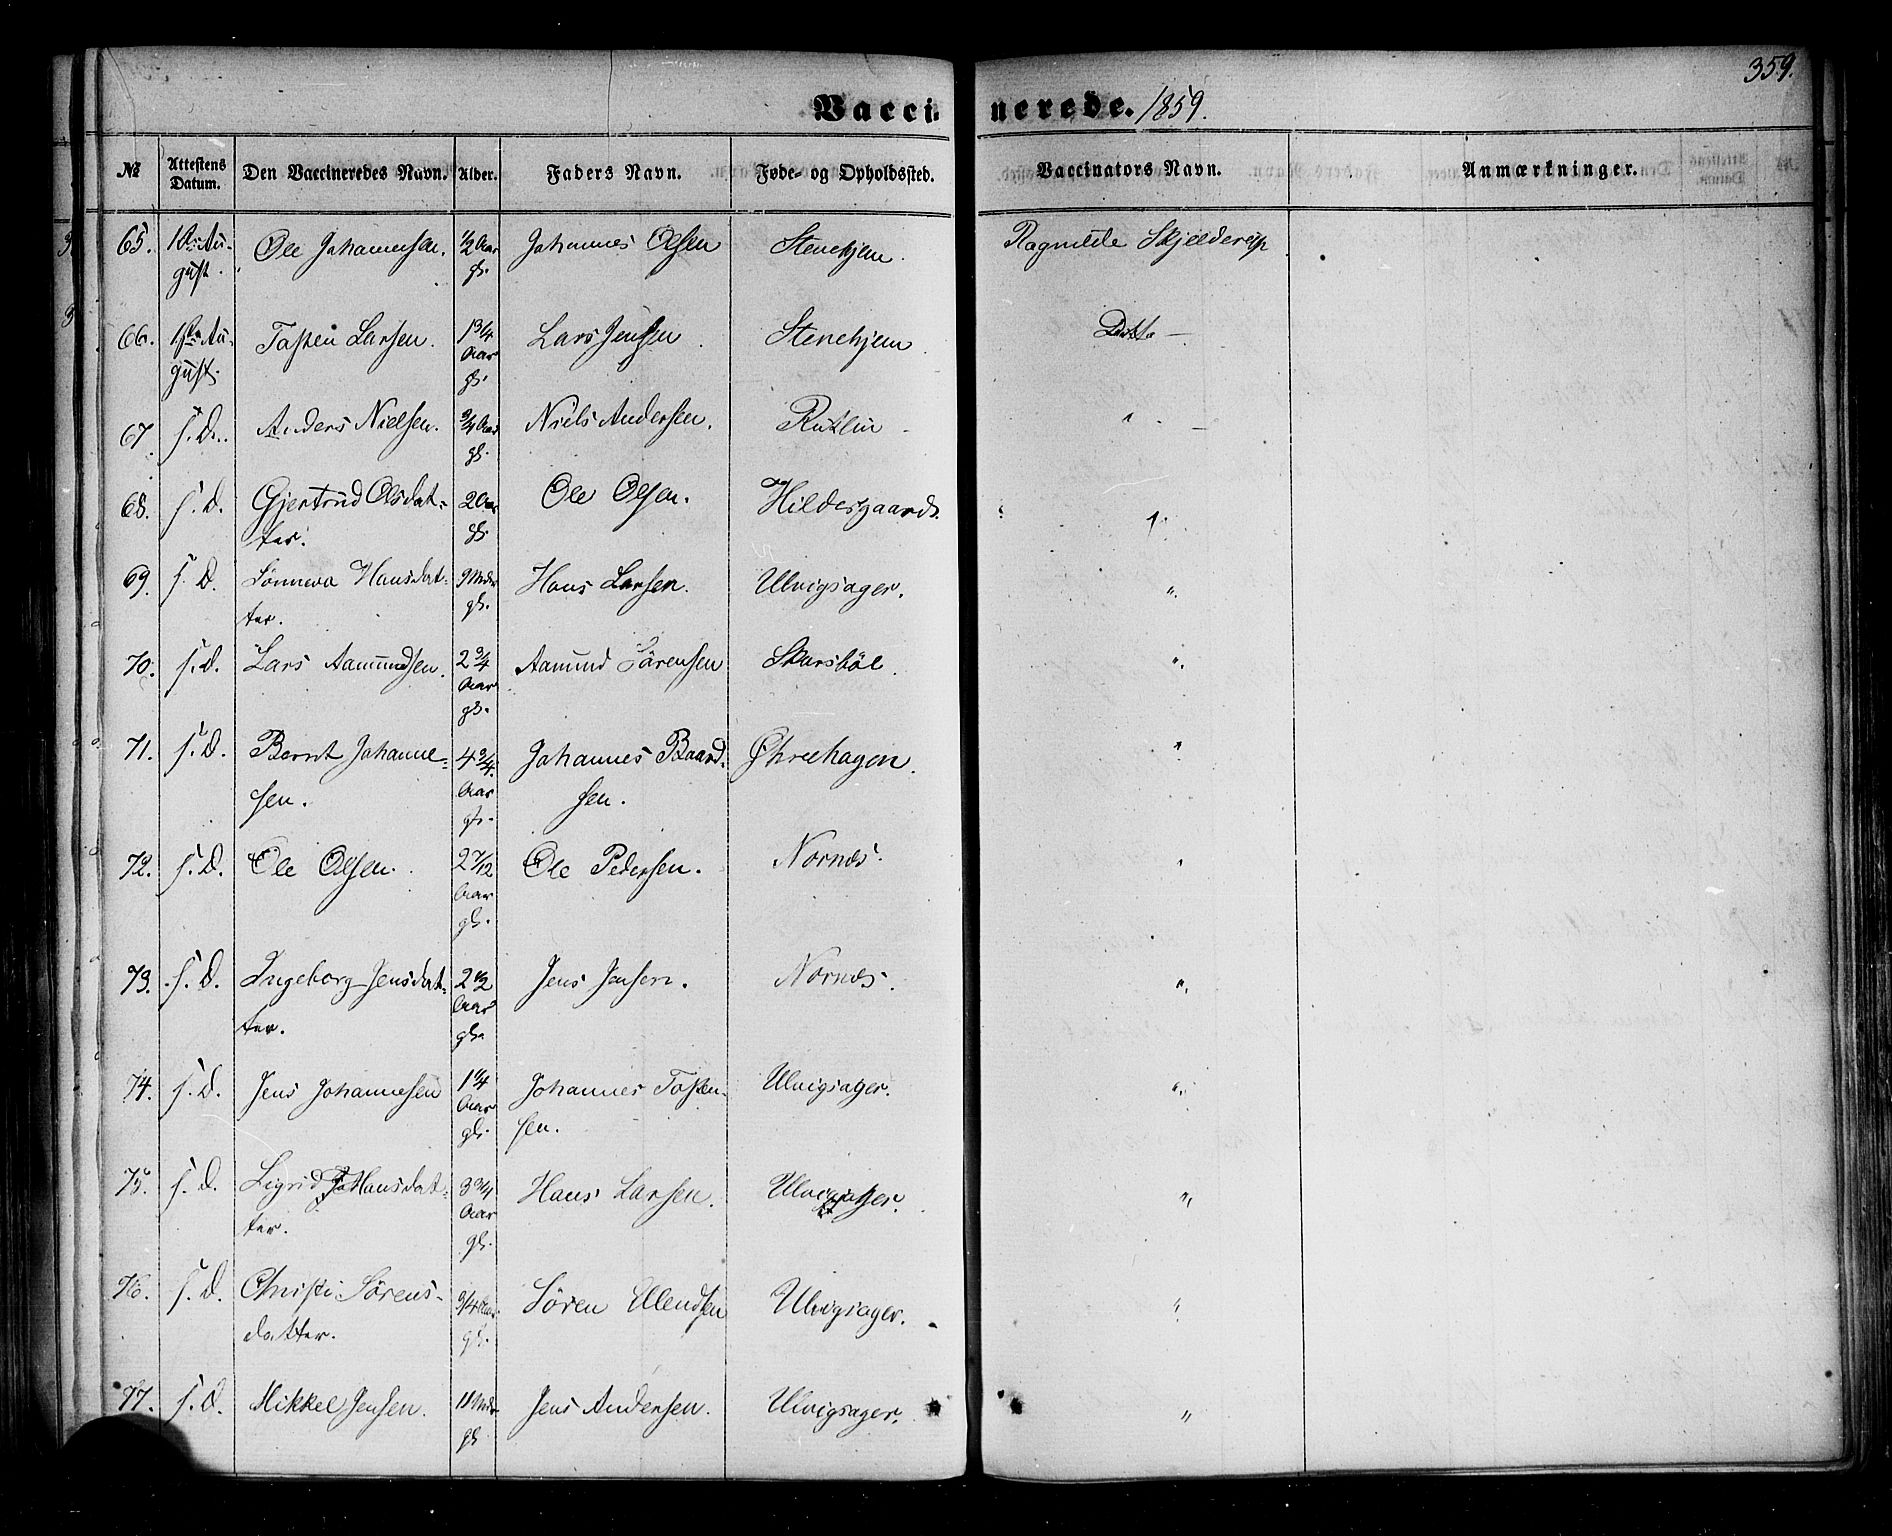 359.
Vaccinerede. 1859.
№ Attestens Datum. Den Vaccineredes Navn. Alder. Faders Navn. Føde- og Opholdssted. Vaccinators Navn. Anmærkninger.
65. 1ste Au- Ole Johannesen. 1/2 Aar Johannes Olsen Stenehjem. Ragnilde Skjelderup
gust. gl.
66. 1ste Au- Tosten Larsen. 1 3/4 Lars Jensen Stenehjem. Ditto —
gust. Aar
gl.
67. s. D. Anders Nielsen. 3/4 Aar Niels Andersen. Rutlin "
gl.
68. s. D. Gjertrud Olsdat- 2 Aar Ole Olsen. Hildesgaard. "
ter. gl.
69. s. D. Sönneva Hansdat- 9 Mdr Hans Larsen. Ulvigsager. "
ter. gl.
70. s. D. Lars Aamundsen. 2 3/4 Aamund Sörensen Skarsböl. "
Aar
gl.
71. s. D. Bernt Johanne- 4 3/4 Johannes Baard- Øhreehagen. "
sen. Aar sen.
gl.
72. s. D. Ole Olsen. 2 7/12 Ole Pedersen. Nornæs. "
Aar
gl.
73. s. D. Ingeborg Jensdat- 2 1/2 Jens Jensen. Nornæs. "
ter. Aar
gl.
74. s. D. Jens Johannesen 1 1/4 Johannes Tosten- Ulvigsager. "
Aar sen.
gl.
75. s. D. Sigrid Hansdat- 3 3/4 Hans Larsen. Ulvigsager. "
ter. Aar
gl.
76. s. D. Christi Sörens- 3/4 Aar Sören Ellendsen Ulvigsager. "
datter. gl.
77. s. D. Mikkel Jensen. 11 Mdr Jens Andersen. Ulvigsager. "
gl.